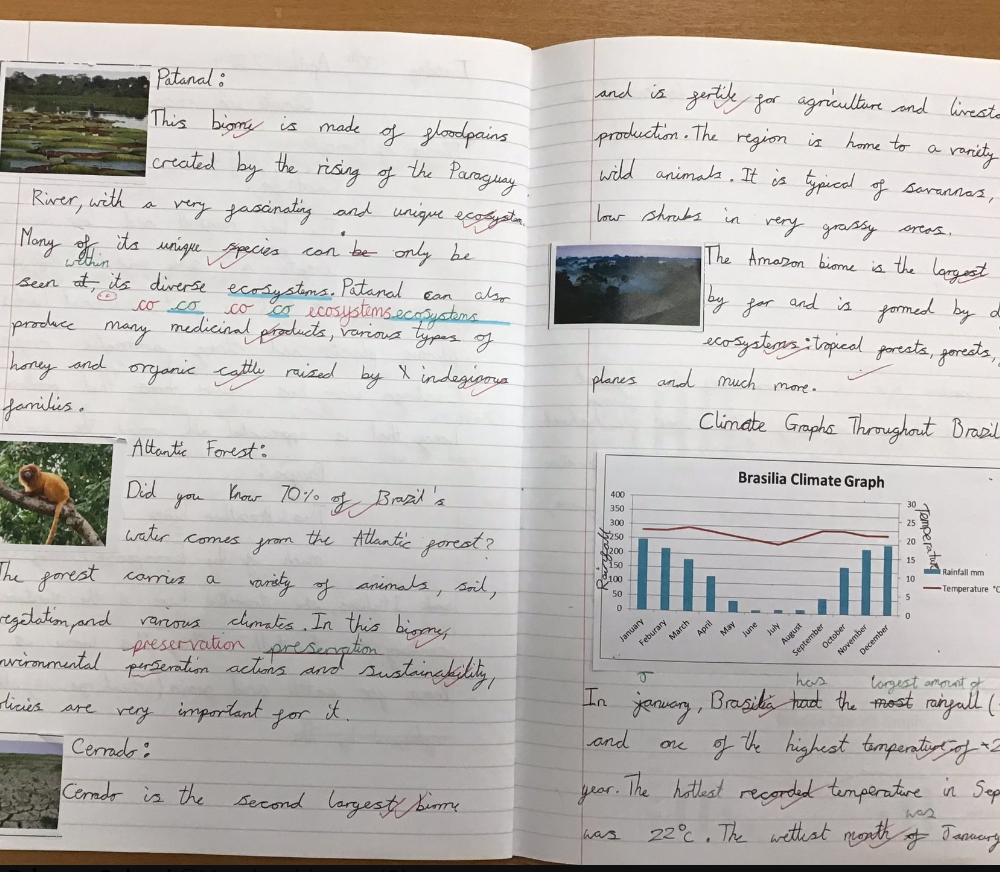 Patanal:
This biome is made of floodpains
created by the rising of the Paraguay
River, with a very fascinating and unique ecosystem.
Many of its unique species can be only be
within
seen at its diverse ecosystems. Patanal can also
co co co co ecosystems ecosystems
produce many medicinal products, various types of
honey and organic cattle raised by indeginous
families.
Atlantic Forest:
Did you know 70% of Brazil's
water comes from the Atlantic forest?
The forest carries a variety of animals, soil,
vegetation, and various climates. In this biome,
preservation preservation
nvironmental perseration actions and sustainability,
olicies are very important for it.
Cerrado:
Cerrado is the second largest biome
and is fertile for agriculture and livesto
production. The region is home to a variety
wild animals. It is typical of savannas,
low shrubs in very grassy areas.
The Amazon biome is the largest
by far and is formed by d
ecosystems: tropical forests, forests,
planes and much more.
Climate Graphs Throughout Brazil
Brasilia Climate Graph
400
350
300
250
200
150
100
50
0
Rainfall
30
25
20
15
10
5
0
Temperature
Rainfall mm
Temperature °C
January
Feburary
March
April
May
June
July
August
September
October
November
December
J has largest amount of
In january, Brasilia had the most rainfall (
and one of the highest temperature of 2
year. The hottest recorded temperature in Sep
was
was 22°c. The wettest month of January